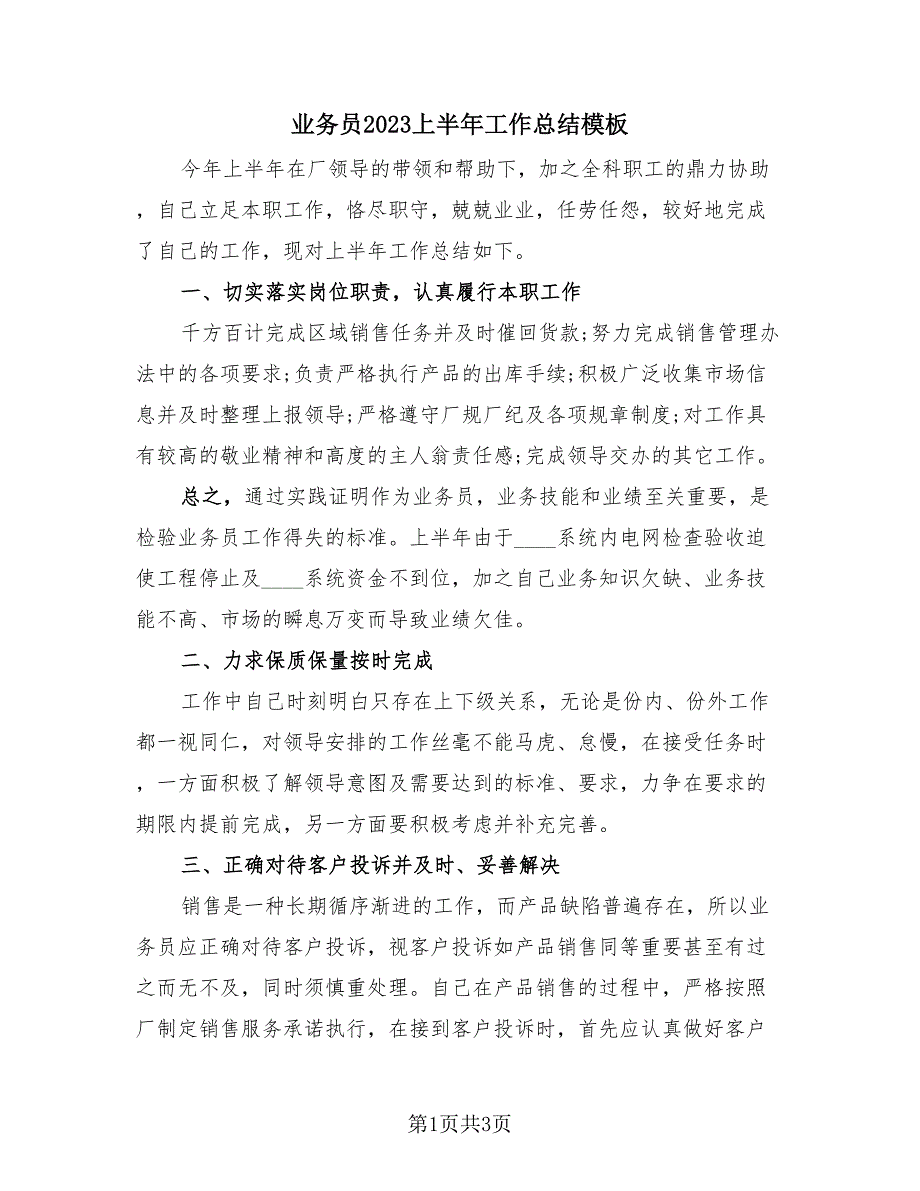 业务员2023上半年工作总结模板
今年上半年在厂领导的带领和帮助下，加之全科职工的鼎力协助
，自己立足本职工作，恪尽职守，兢兢业业，任劳任怨，较好地完成
了自己的工作，现对上半年工作总结如下。
一、切实落实岗位职责，认真履行本职工作
千方百计完成区域销售任务并及时催回货款;努力完成销售管理办
法中的各项要求;负责严格执行产品的出库手续;积极广泛收集市场信
息并及时整理上报领导;严格遵守厂规厂纪及各项规章制度;对工作具
有较高的敬业精神和高度的主人翁责任感;完成领导交办的其它工作。
总之，通过实践证明作为业务员，业务技能和业绩至关重要，是
检验业务员工作得失的标准。上半年由于____系统内电网检查验收迫
使工程停止及____系统资金不到位，加之自己业务知识欠缺、业务技
能不高、市场的瞬息万变而导致业绩欠佳。
二、力求保质保量按时完成
工作中自己时刻明白只存在上下级关系，无论是份内、份外工作
都一视同仁，对领导安排的工作丝毫不能马虎、怠慢，在接受任务时
，一方面积极了解领导意图及需要达到的标准、要求，力争在要求的
期限内提前完成，另一方面要积极考虑并补充完善。
三、正确对待客户投诉并及时、妥善解决
销售是一种长期循序渐进的工作，而产品缺陷普遍存在，所以业
务员应正确对待客户投诉，视客户投诉如产品销售同等重要甚至有过
之而无不及，同时须慎重处理。自己在产品销售的过程中，严格按照
厂制定销售服务承诺执行，在接到客户投诉时，首先应认真做好客户
第1页共3页